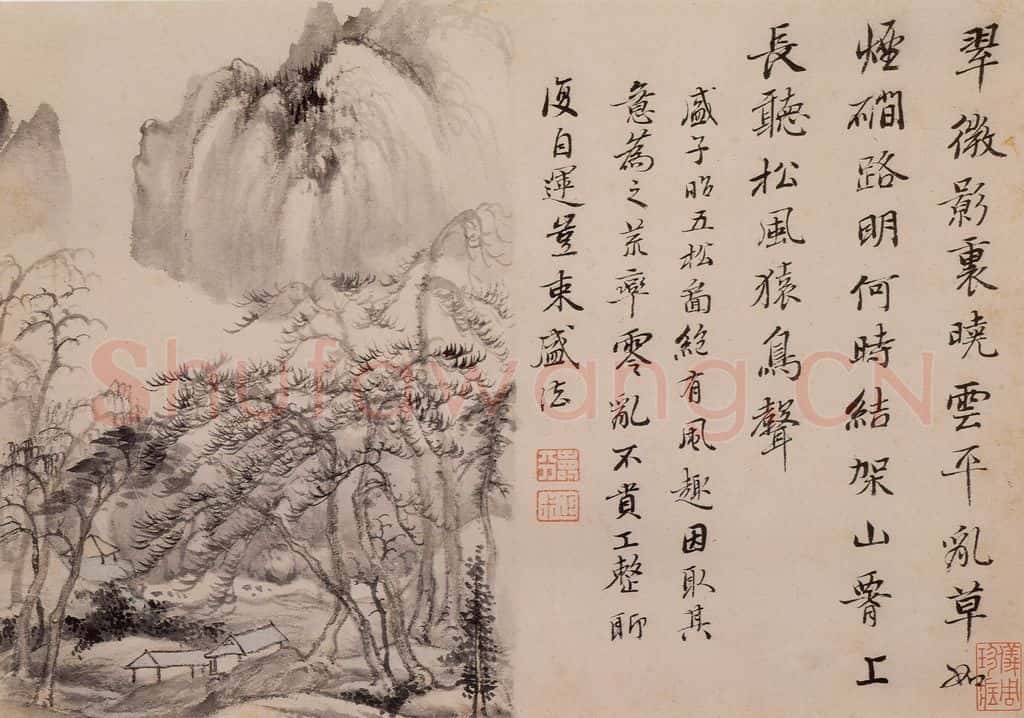 翠微影裏曉雲平亂草如
煙磵路明何時結架山脊上
長聽松風猿鳥聲
盛子昭五松圖絕有風趣因取其
意為之荒率零亂不貴工整聊
復自運豈束盛法
壽平
儀周珍藏
Shufawang.CN